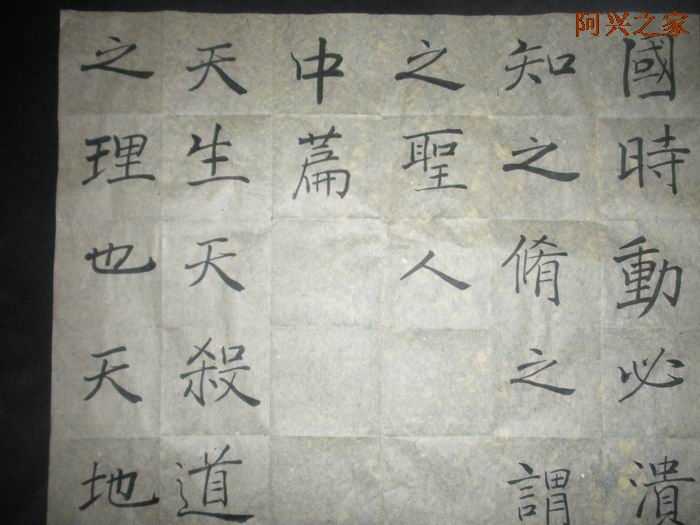 阿兴之家
國時動必潰
知之脩之謂
之聖人
中篇
天生天殺道
之理也天地